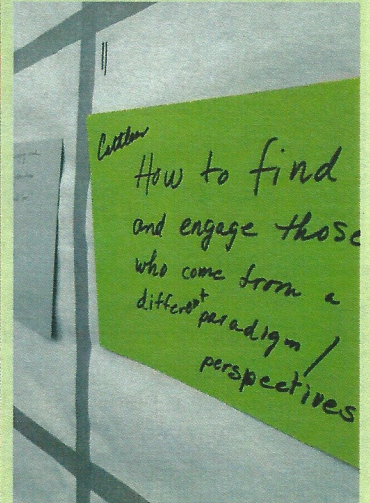 How to find
and engage those
who come from a
different paradigm /
perspectives